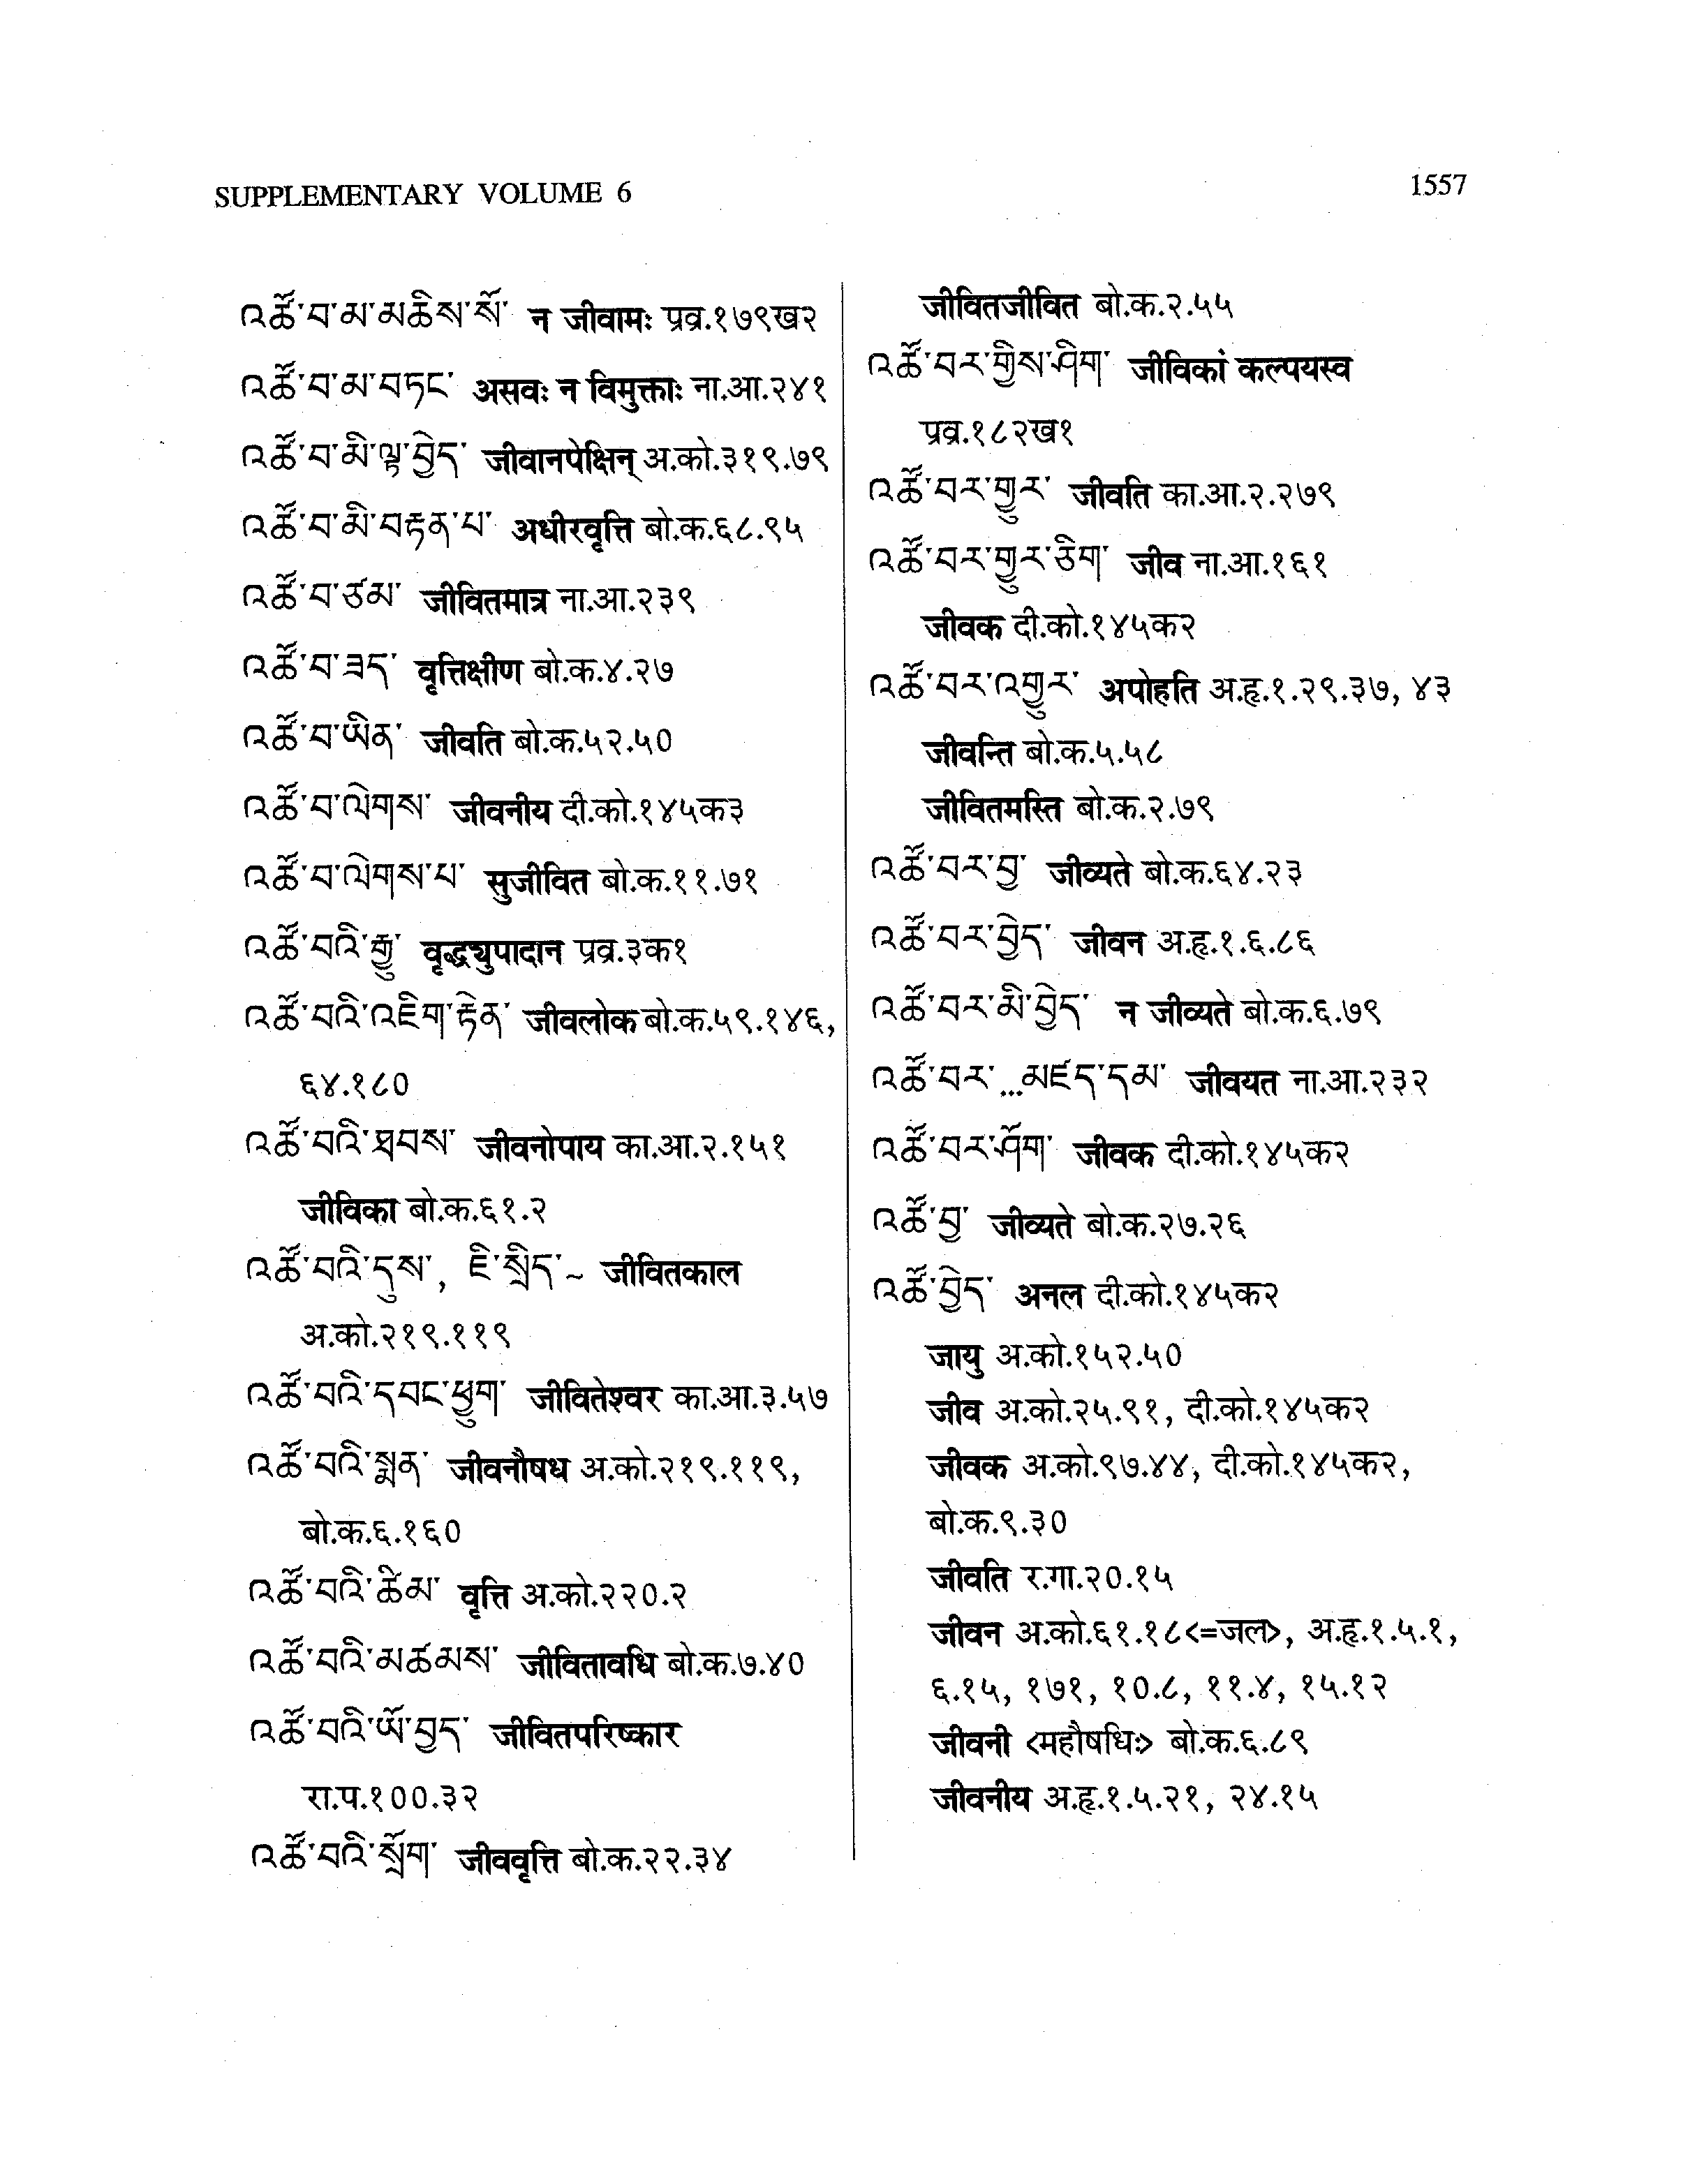 SUPPLEMENTARY VOLUME 6
1557
འཚོ་བ་མ་མཆིས་སོ་ न जीवामः प्रव्र.१७९ख२
འཚོ་བ་མ་བཏང་ असवः न विमुक्ताः ना.आ.२४१
འཚོ་བ་མི་ལྟ་བྱེད་ जीवानपेक्षिन् अ.को.३१९.७९
འཚོ་བ་མི་བརྟན་པ་ अधीरवृत्ति बो.क.६८.९५
འཚོ་བ་ཙམ་ जीवितमात्र ना.आ.२३९
འཚོ་བ་ཟད་ वृत्तिक्षीण बो.क.४.२७
འཚོ་བ་ཡིན་ जीवति बो.क.५२.५०
འཚོ་བ་ལེགས་ जीवनीय दी.को.१४५क३
འཚོ་བ་ལེགས་པ་ सुजीवित बो.क.११.७१
འཚོ་བའི་རྒྱུ་ वृद्ध्युपादान प्रव्र.३क१
འཚོ་བའི་འཇིག་རྟེན་ जीवलोक बो.क.५९.१४६,
६४.१८०
འཚོ་བའི་ཐབས་ जीवनोपाय का.आ.२.१५१
जीविका बो.क.६१.२
འཚོ་བའི་དུས་, ཇི་སྲིད་~ जीवितकाल
अ.को.२१९.११९
འཚོ་བའི་དབང་ཕྱུག་ जीवितेश्वर का.आ.३.५७
འཚོ་བའི་སྨན་ जीवनौषध अ.को.२१९.११९,
बो.क.६.१६०
འཚོ་བའི་ཚེམ་ वृत्ति अ.को.२२०.२
འཚོ་བའི་མཚམས་ जीवितावधि बो.क.७.४०
འཚོ་བའི་ཡོ་བྱད་ जीवितपरिष्कार
रा.प.१००.३२
འཚོ་བའི་སྲོག་ जीववृत्ति बो.क.२२.३४
जीवितजीवित बो.क.२.५५
འཚོ་བར་གྱིས་ཤིག་ जीविकां कल्पयस्व
प्रव्र.१८२ख१
འཚོ་བར་གྱུར་ जीवति का.आ.२.२७९
འཚོ་བར་གྱུར་ཅིག་ जीव ना.आ.१६१
जीवक दी.को.१४५क२
འཚོ་བར་འགྱུར་ अपोहति अ.हृ.१.२९.३७, ४३
जीवन्ति बो.क.५.५८
जीवितमस्ति बो.क.२.७९
འཚོ་བར་བྱ་ जीव्यते बो.क.६४.२३
འཚོ་བར་བྱེད་ जीवन अ.हृ.१.६.८६
འཚོ་བར་མི་བྱེད་ न जीव्यते बो.क.६.७९
འཚོ་བར་...མཛད་དམ་ जीवयत ना.आ.२३२
འཚོ་བར་ཤོག་ जीवक दी.को.१४५क२
འཚོ་བྱ་ जीव्यते बो.क.२७.२६
འཚོ་བྱེད་ अनल दी.को.१४५क२
जायु अ.को.१५२.५०
जीव अ.को.२५.९१, दी.को.१४५क२
जीवक अ.को.९७.४४, दी.को.१४५क२,
बो.क.९.३०
जीवति र.गा.२०.१५
जीवन अ.को.६१.१८<=जल>, अ.हृ.१.५.१,
६.१५, १७१, १०.८, ११.४, १५.१२
जीवनी <महौषधिः> बो.क.६.८९
जीवनीय अ.हृ.१.५.२१, २४.१५